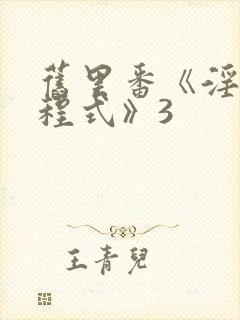 舊里番《淫
程式》3
王青兒